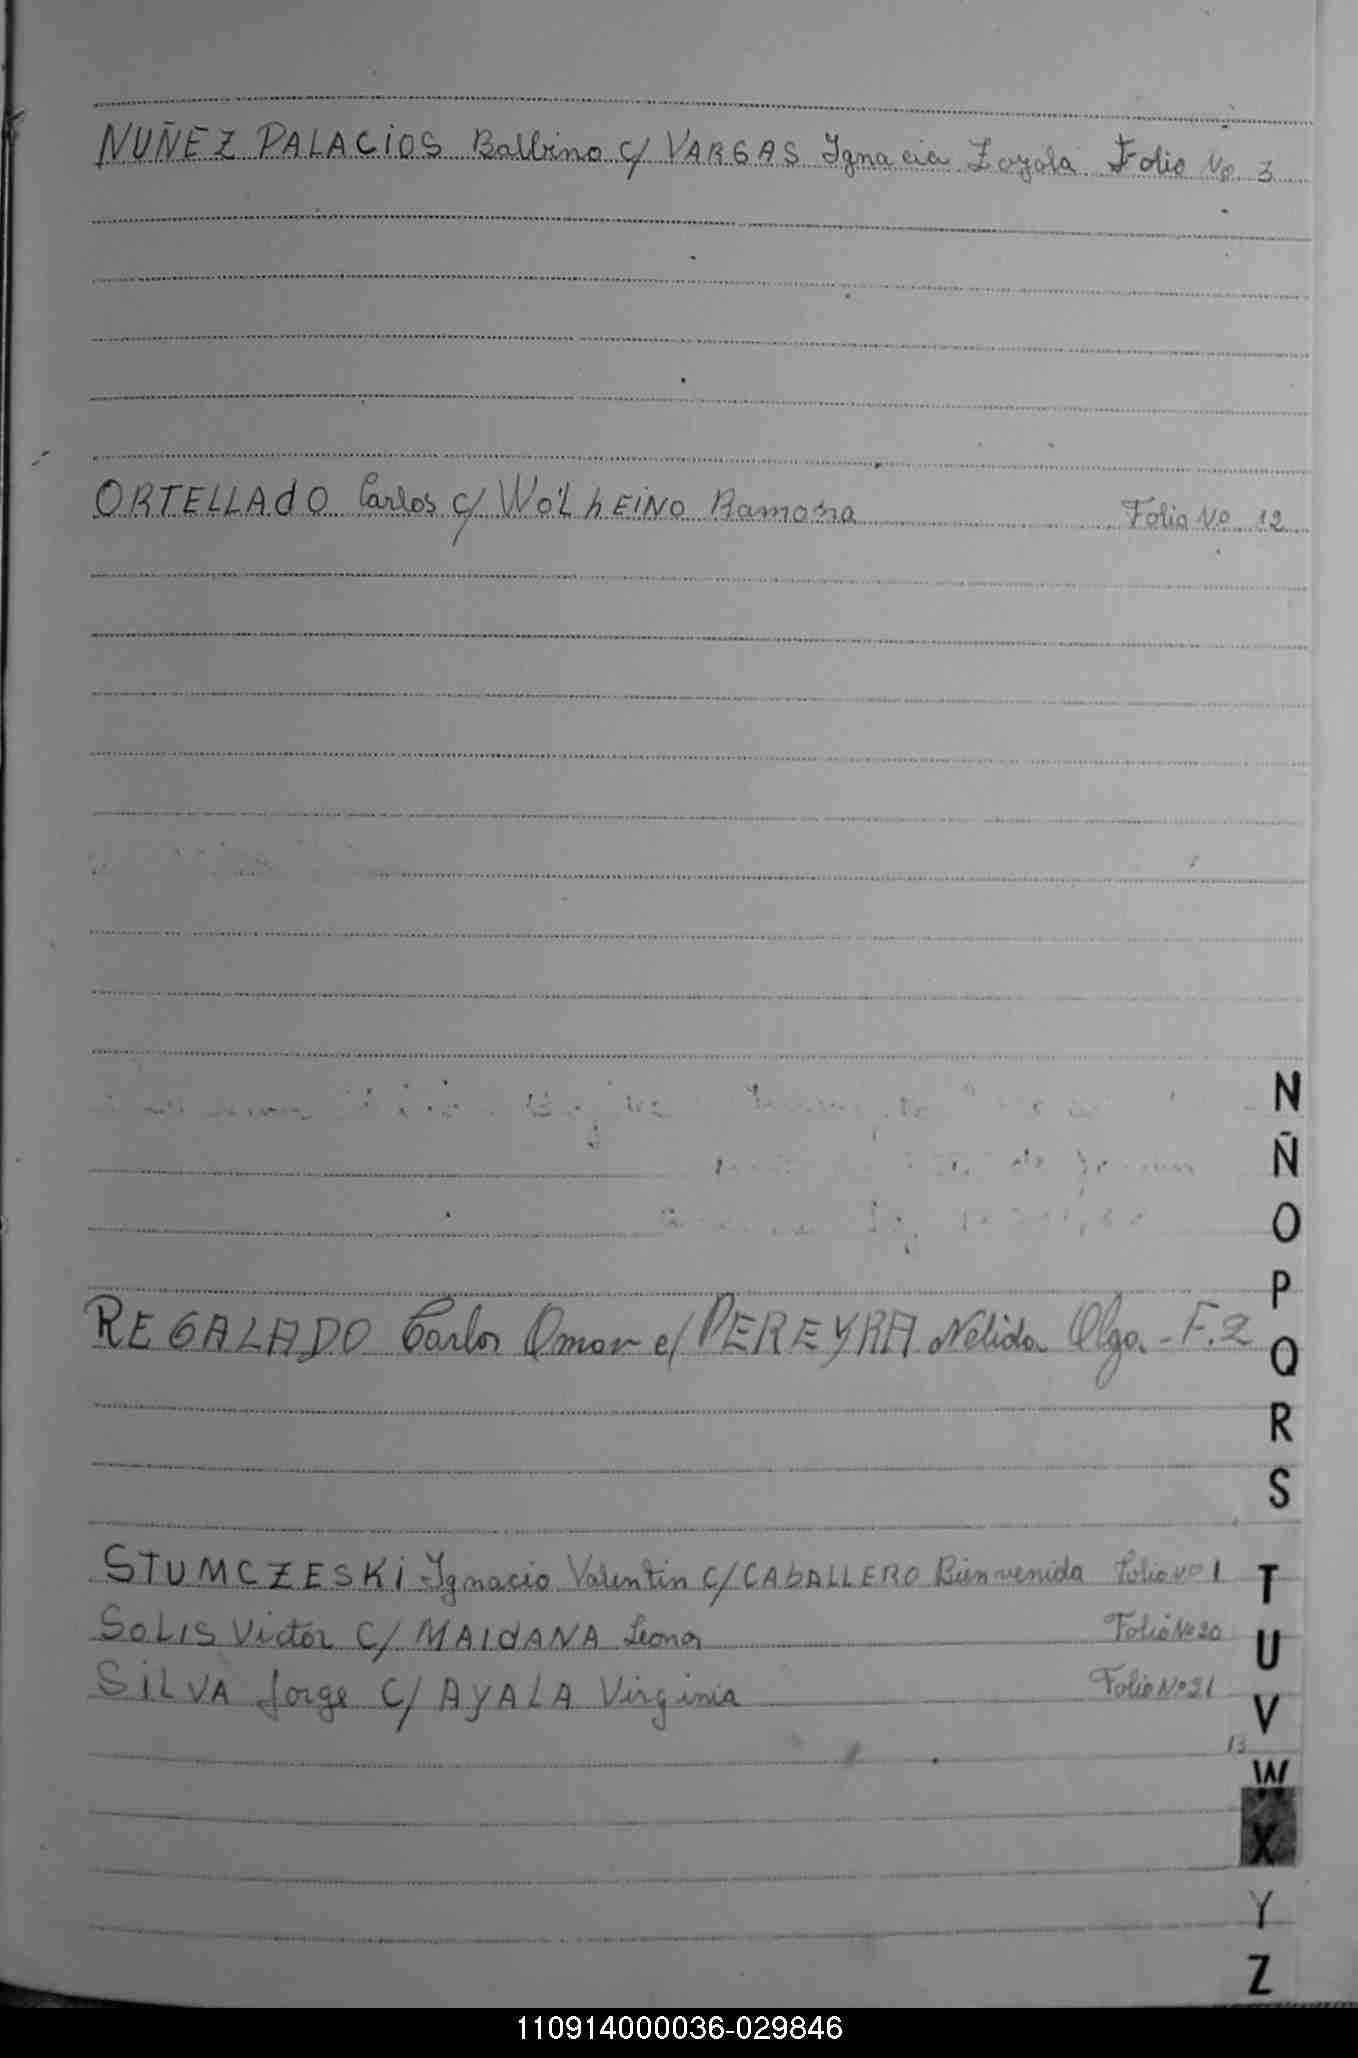 NUÑEZ PALACIOS Balbino c/ VARGAS Ignacia Loyola Folio No 3
ORTELLADO Carlos c/ WOLHEINO Ramona Folio No 12
REGALADO Carlos Omar c/ PEREYRA Nelida Olga - F. 2
STUMCZESKI Ignacio Valentin C/ CABALLERO Bienvenida Folio Nº 1
SOLIS Victor C/ MAIDANA Leonor Folio Nº 20
SILVA Jorge C/ AYALA Virginia Folio Nº 21
13
N
Ñ
O
P
Q
R
S
T
U
V
W
X
Y
Z
110914000036-029846